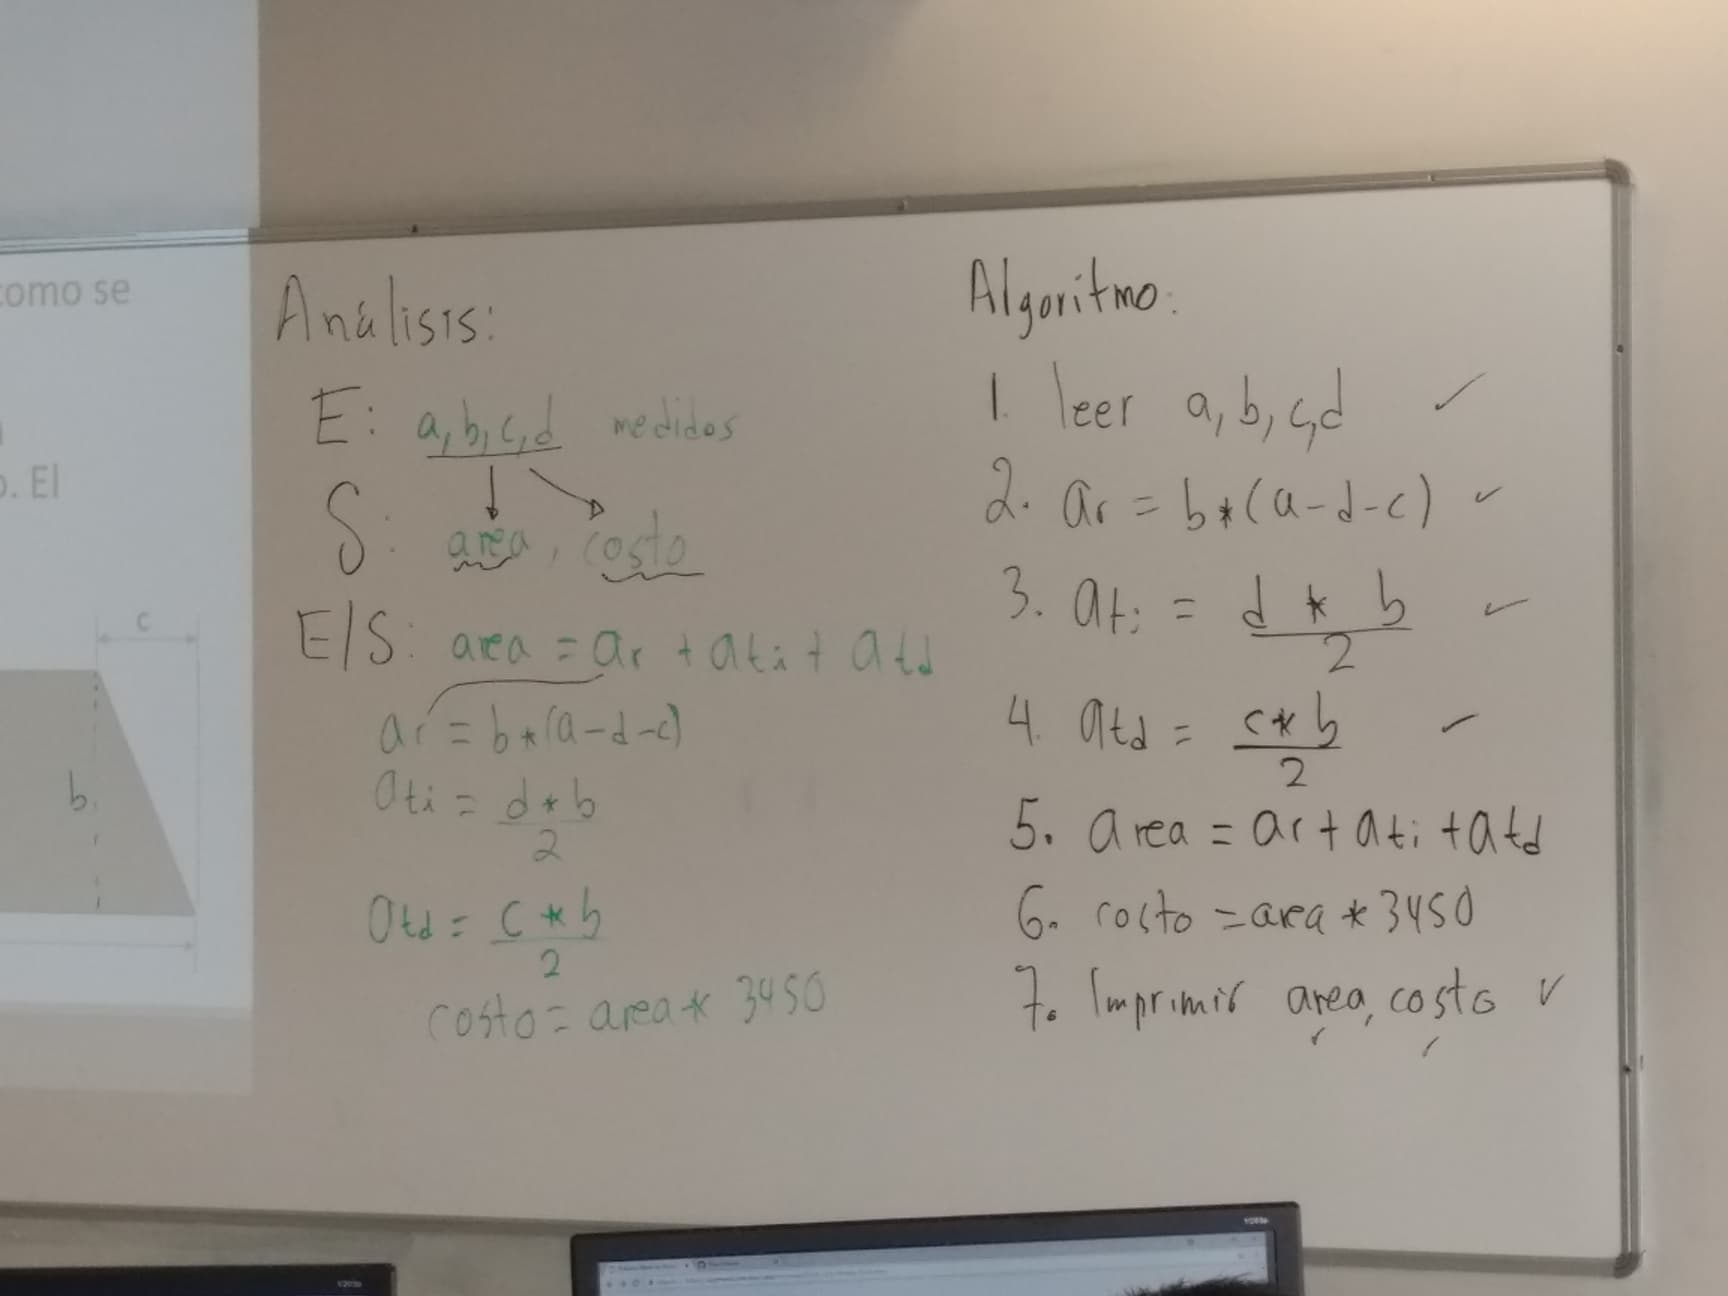 como se
o. El
c
b
Análisis:
E: a, b, c, d medidos
S: area, costo
E/S: area = ar + ati + atd
ar = b*(a-d-c)
ati = d * b
2
atd = c * b
2
costo = area * 3450
Algoritmo:
1. leer a, b, c, d
2. ar = b*(a-d-c)
3. ati = d * b
2
4. atd = c * b
2
5. area = ar + ati + atd
6. costo = area * 3450
7. Imprimir area, costo
V203p
V203p